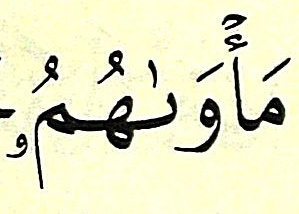 مَأْوَىٰهُمُۥ